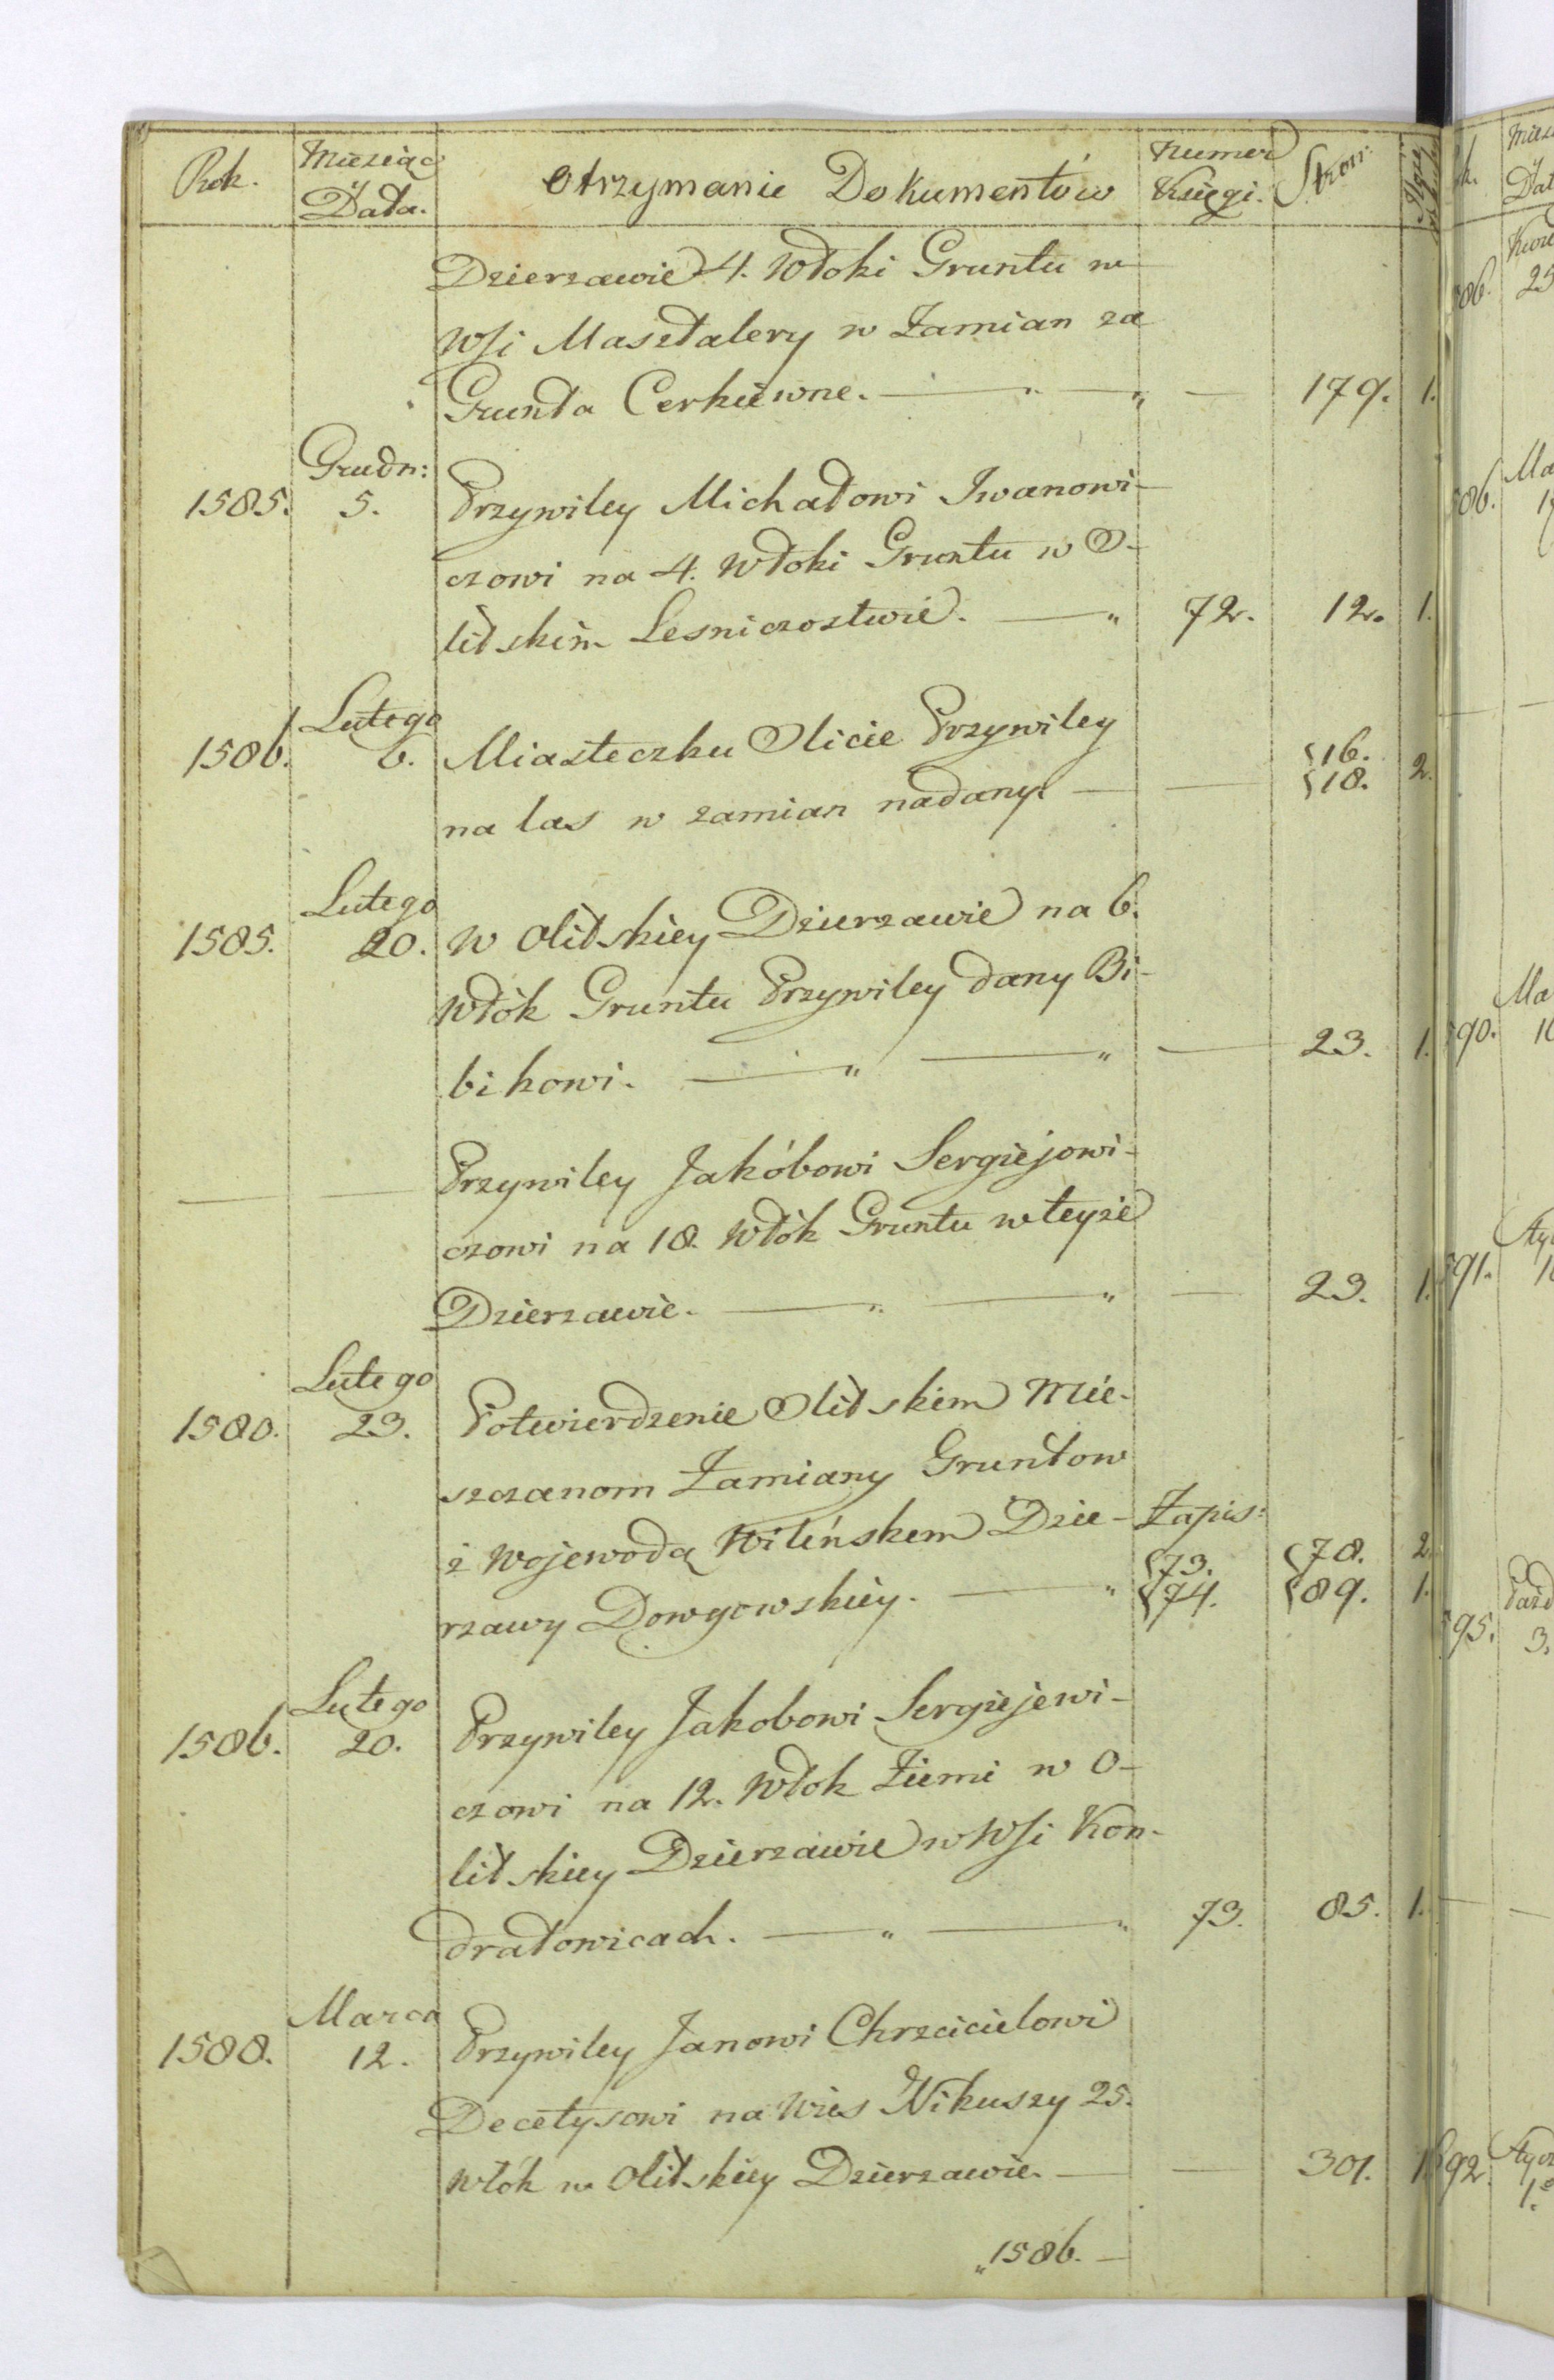 Rok. Miesiąc i Data. Otrzymanie Dokumentów Numer Księgi. Stron:
Dzierzawie 4. Włoki Gruntu w
Wsi Masztalery w Zamian za
Grunta Cerkiewne. — " — " — 179. 1.
1585. Grudn: 5. Przywiley Michałowi Iwanowi-
czowi na 4. Włoki Gruntu w O-
litskim Lesniczostwie. — " 72. 12. 1.
1586. Lutego 6. Miasteczku Olicie Przywiley
na las w zamian nadany. — — {16. {18. 2.
1585. Lutego 20. W Olitskiey Dzierzawie na 6.
Włók Gruntu Przywiley dany Bi-
bikowi. — " — " — 23. 1.
— — Przywiley Jakóbowi Sergiejowi-
czowi na 18. Włók Gruntu w teyże
Dzierzawie. — " — " — 23. 1.
1580. Lutego 23. Potwierdzenie Olitskim Mie-
szczanom Zamiany Gruntow
z Wojewodą Wileńskem Dzie- Zapis:
rzawy Dowgowskiey. — " {73. {74. {78. {89. 2. 1.
1586. Lutego 20. Przywiley Jakobowi Sergiejewi-
czowi na 12. Włok Ziemi w O-
litskiey Dzierzawie w Wsi Kon-
dratowicach. — " — " 73. 85. 1.
1588. Marca 12. Przywiley Janowi Chrzcicielowi
Decetysowi na Wies Nikuszy 25.
Włók w Olitskiey Dzierzawie. — — 301. 1.
"1586. —